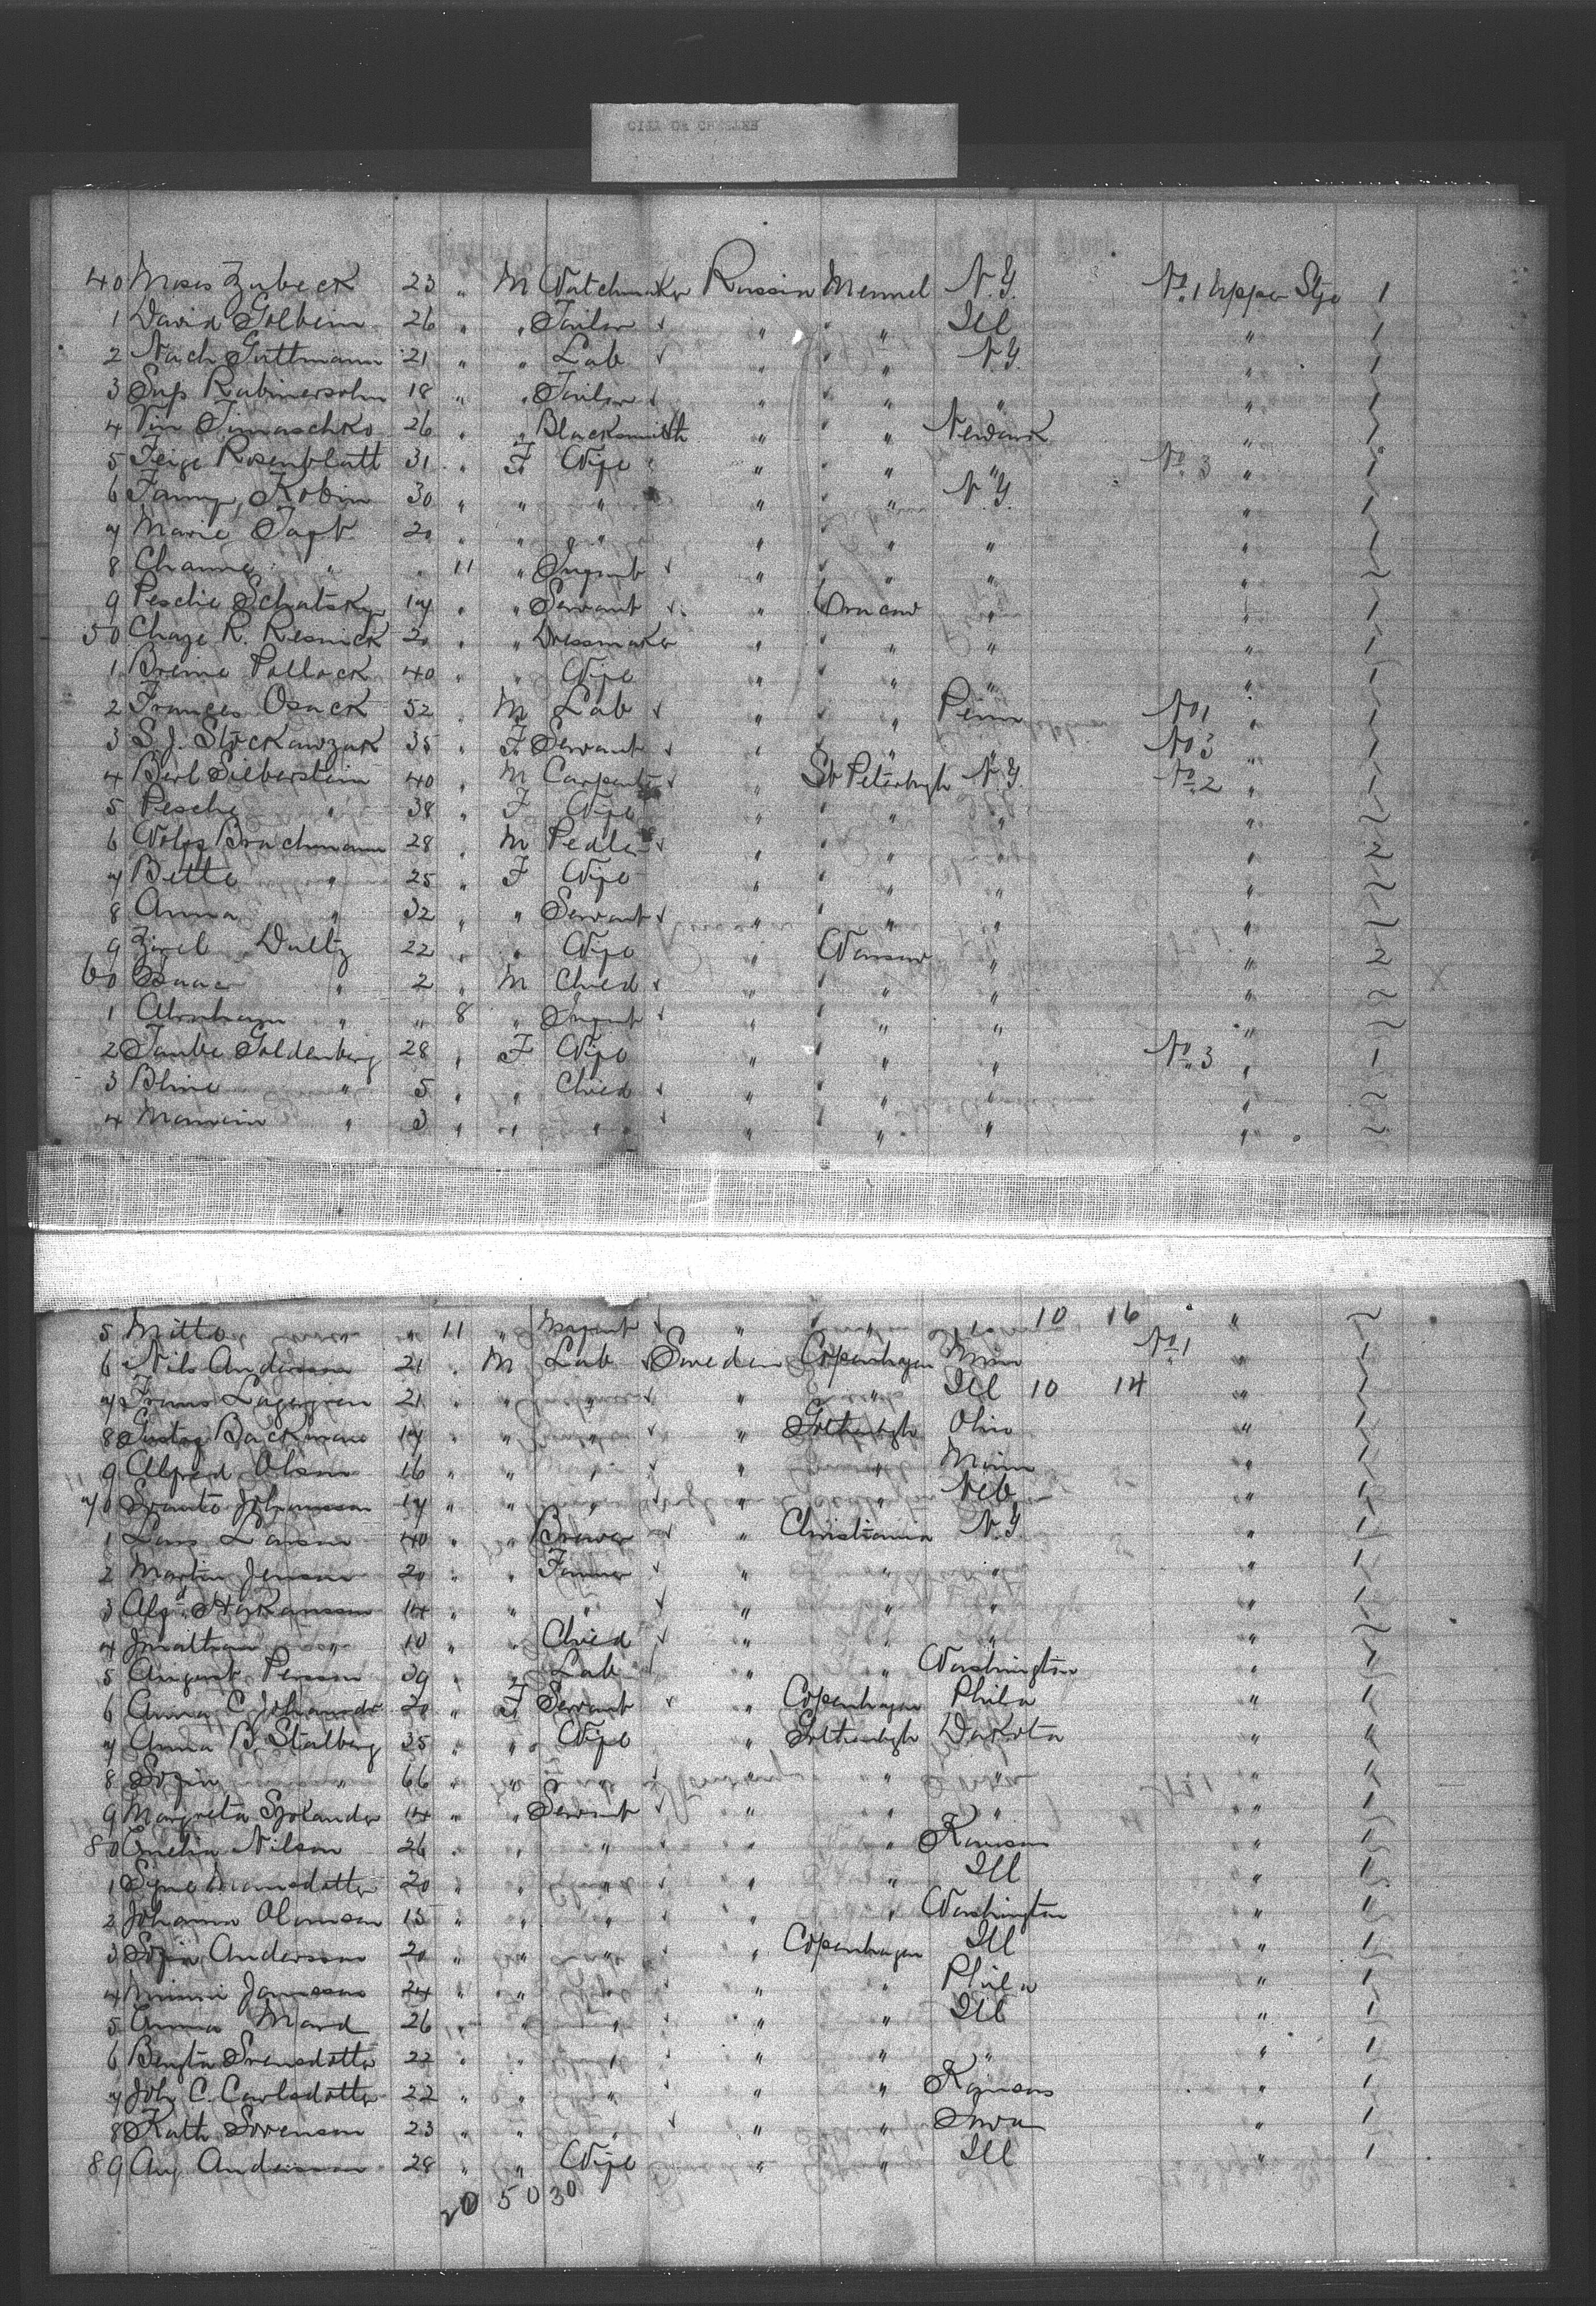 CITY OF CHESTER
40 Moses Zubeck 23 " M Watchmaker Russia Memmel N.Y. No. 1 Upper Stge 1
1 David Golbein 26 " " Tailor " " Ill " 1
2 Nach Guttmann 21 " " Lab " " N.Y. " 1
3 Sup Rabinersohn 18 " " Tailor " " " " 1
4 Vin Timaschko 26 " " Blacksmith " " Newark " 1
5 Feige Rosenblatt 31 " F Wife " " " No. 3 " 1
6 Fanny Robin 30 " " " " " N.Y. " 1
7 Marie 20 " " " " " " " 1
8 Channe " " 11 " Infant " " " " ~
9 Pesche Schatsky 17 " " Servant " " " 1
50 Chaze R. Resnick 20 " " Dressmaker " " " " 1
1 Breine Pollack 40 " " Wife " " " " 1
2 Frances Osack 52 " M Lab " " Penn No 1 " 1
3 S. J. Stockawzak 35 " F Servant " " " No 3 " 1
4 Berl Sieberstein 40 " M Carpenter " St Petersbgh N.Y. No. 2 " 1
5 Pesche " 38 " F Wife " " " " ~
6 Wolf Brachmann 28 " M Pedler " " " " 2
7 Bette " 25 " F Wife " " " " ~
8 Anna " 32 " " Servant " " " " ~
9 Zirel Waltz 22 " " Wife " Warsaw " " 2
60 Isaac " 2 " M Child " " " " ~
1 Abraham " " 8 " Infant " " " " ~
2 Taube Goldenberg 28 " F Wife " " " No. 3 " 1
3 Bline " 5 " " Child " " " " ~
4 " 3 " " " " " " " ~
5 Mitto " " 11 " Infant " " 10 16 " ~
6 Nils Anderson 21 " M Lab Sweden Copenhagen Minn No. 1 " 1
7 Frans Lagergren 21 " " " " " Ill 10 14 " 1
8 Gustaf Backman 17 " " " " Gothenbgh Ohio " 1
9 Alfred Olson 16 " " " " " Minn " 1
70 Svante Johansson 17 " " " " " Neb " 1
1 Lars Larson 40 " " Brewer " Christiania N.Y. " 1
2 Martin Jenson 20 " " Farmer " " " " 1
3 Alfd. Hakansson 14 " " " " " " " 1
4 Jonathan " 10 " " Child " " " " ~
5 August Persson 39 " " Lab " " Washington " 1
6 Anna C. Johansdr 20 " F Servant " Copenhagen Phila " 1
7 Anna B. Stalberg 35 " " Wife " Gothenbgh Dakota " "
8 Sofia " 66 " " " " " " " "
9 Margreta Sjolander 14 " " Servant " " " " 1
80 Emelia Nilson 26 " " " " " Kansas " 1
1 Signe Mansdotter 20 " " " " " Ill " 1
2 Johanna Olamson 15 " " " " " Washington " 1
3 Sofia Anderson 20 " " " " Copenhagen Ill " 1
4 Minni Jonasson 24 " " " " " Phila " 1
5 Anna Mard 26 " " " " " Ill " 1
6 Bengta Svensdotter 22 " " " " " " " 1
7 Joh. C. Carlsdotter 22 " " " " " Kansas " 1
8 Kath Sorenson 23 " " " " " Iowa " 1
89 Aug. Anderson 28 " " Wife " " Ill " 1
20 50 30